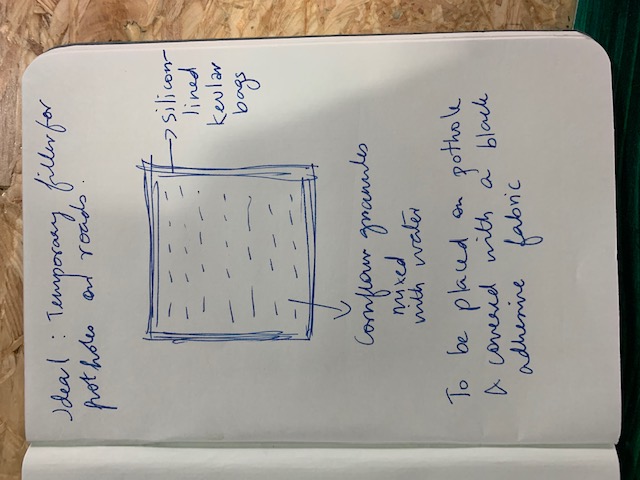 Idea 1 : Temporary filler for
potholes on roads.
silicon-
lined
kevlar
bags
Cornflour granules
mixed
with water
To be placed on pothole
& covered with a black
adhesive fabric